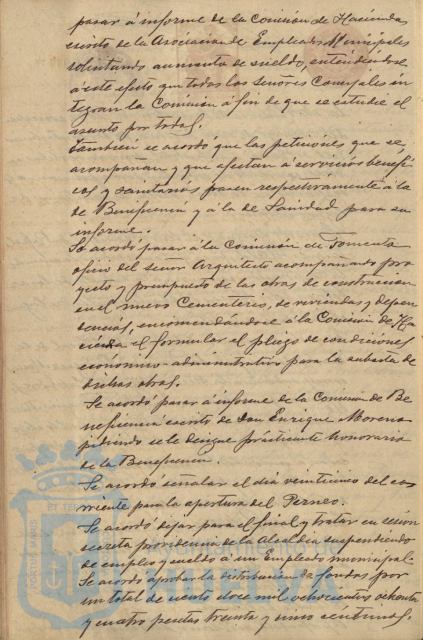 pasar á informe de la Comisión de Hacienda
escrito de la Asociacion de Empleados Municipales
solicitando aumento de sueldo, entendiendose
á este efecto que todos los señores Concejales in
tegran la Comisión á fin de que se estudie el
asunto por todos.
Tambien se acordó que las peticiones que se
acompañan y que afectan á servicios benefi
cos y sanitarios pasen respectivamente á la
de Beneficencia y á la de Sanidad para su
informe.
Se acordó pasar á la Comisión de Fomento
oficio del señor Arquitecto acompañando pro
yecto y presupuesto de las obras de construccion
en el nuevo Cementerio, de viviendas y depen
dencias, encomendandose á la Comisión de Ha
cienda el formular el pliego de condiciones
económico-administrativo para la subasta de
dichas obras.
Se acordó pasar á informe de la Comision de Be
neficencia escrito de Don Enrique Moreno
pidiendo se le designe practicante honorario
de la Beneficencia.
Se acordó señalar el dia veinticinco del co
rriente para la apertura del Perneo.
Se acordó dejar para el final y tratar en sesión
secreta providencia de la Alcaldia suspendiendo
de empleo y sueldo á un Empleado municipal.
Se acordó aprobar la distribucion de fondos por
un total de ciento doce mil ochocientos ochenta
y cuatro pesetas treinta y cinco céntimos.